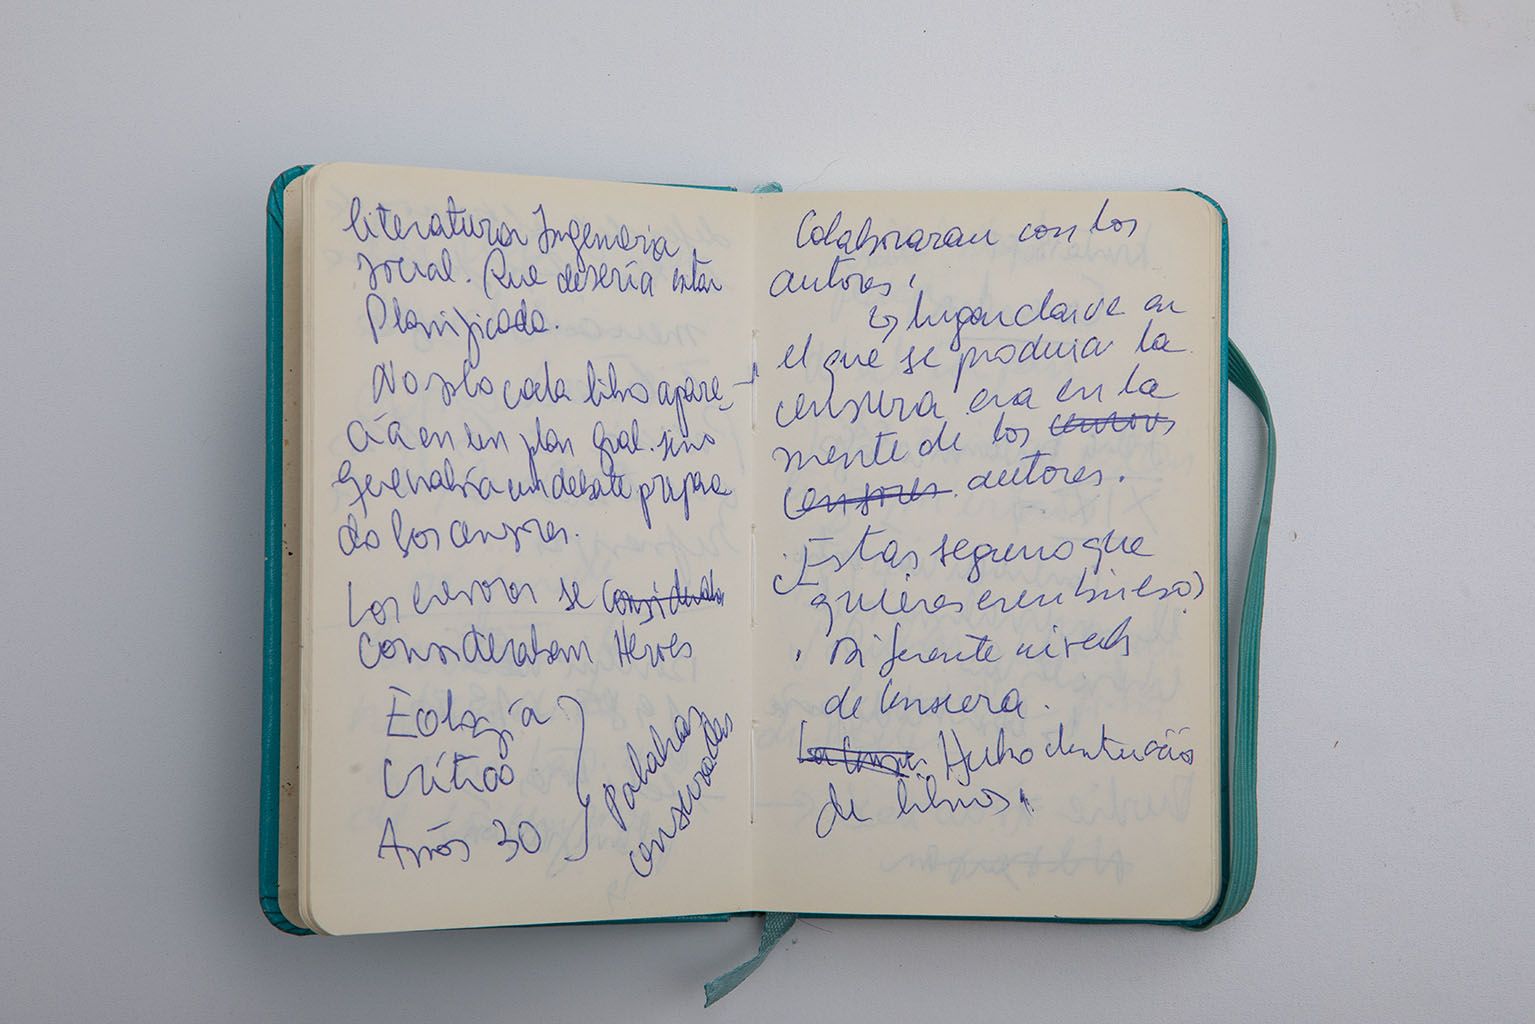 literatura Ingeniería
social. Que desería estar
Planificada.
No solo cada libro apare_
cía en un plan gral. sino
generalría un debate
do los censores.
Los censores se considerab
consideraban Heroes
Ecología
Crítico
Años 30
Palabras
censuradas
Colaboraran con los
autores.
↳ lugar clave en
el que se producia la
censura era en la
mente de los censores
censores. autores.
¿Estas seguro que
quieres escribir eso?
. Diferente niveles
de Censura.
La Censur Hubo destrucción
de libros.